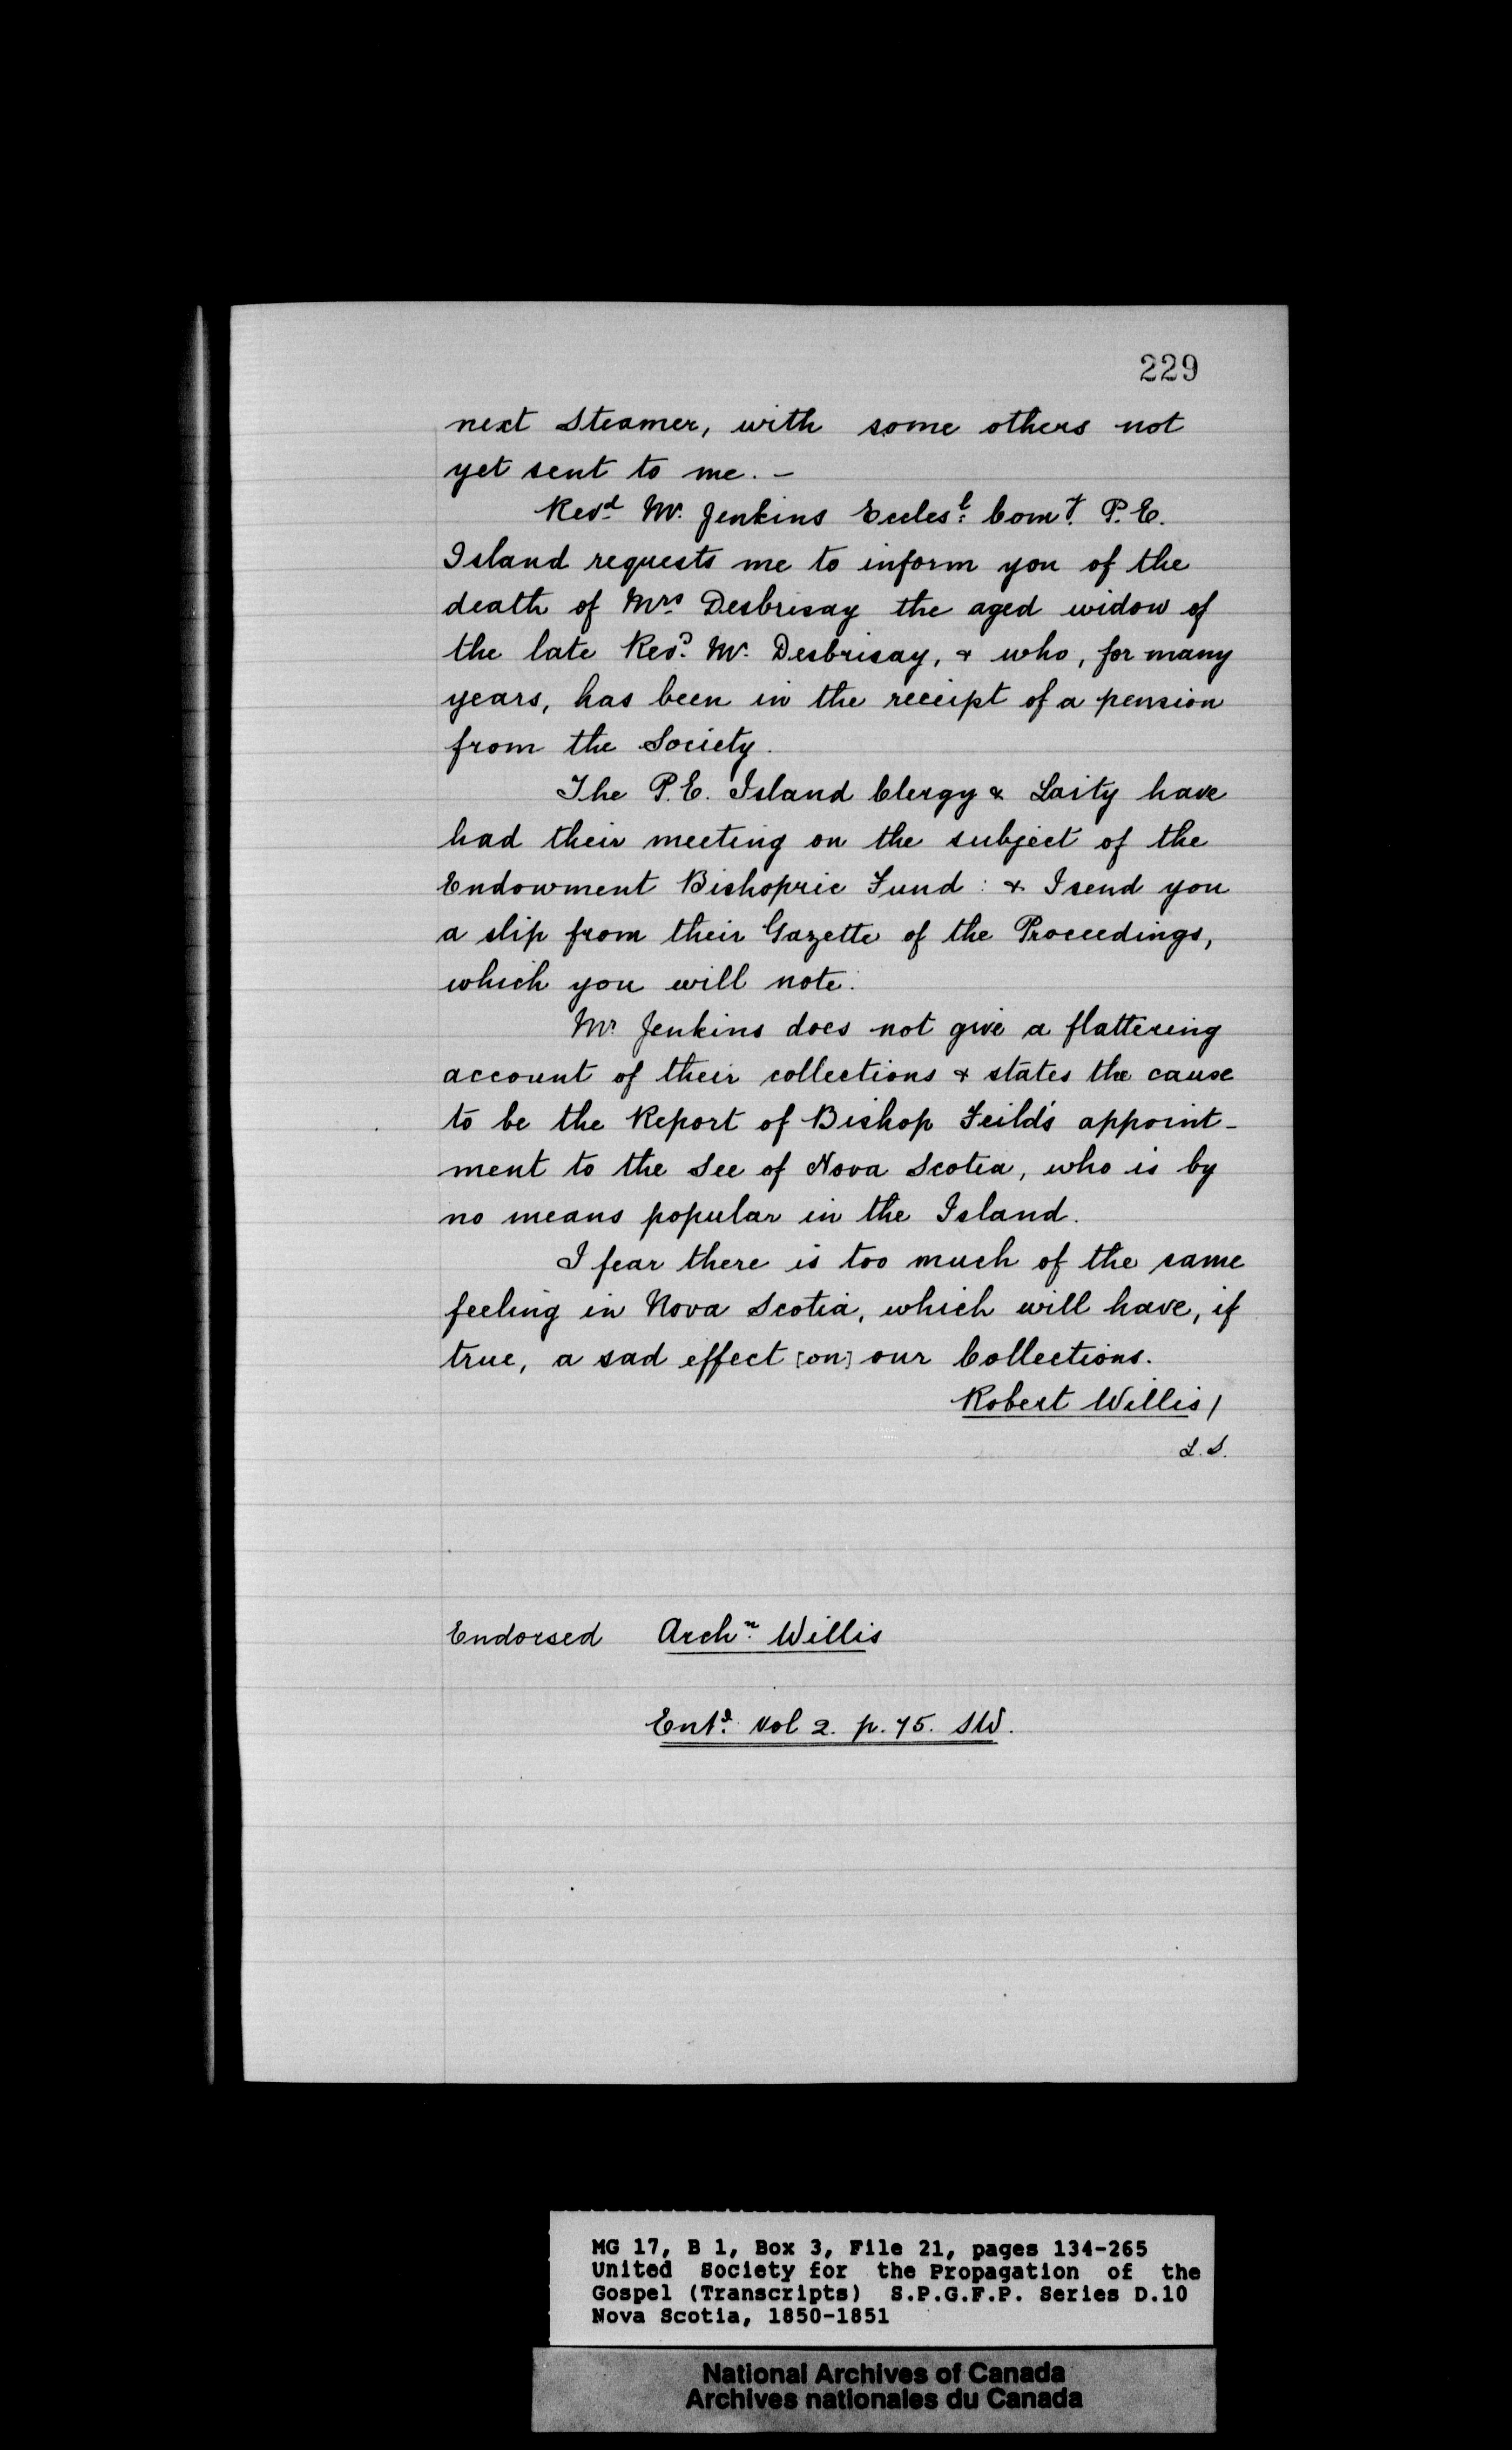 229
next Steamer, with some others not
yet sent to me. –
Revd. Mr. Jenkins Ecclesl. Comy. P.E.
Island requests me to inform you of the
death of Mrs. Desbrisay the aged widow of
the late Revd. Mr. Desbrisay, & who, for many
years, has been in the receipt of a pension
from the Society.
The P.E. Island Clergy & Laity have
had their meeting on the subject of the
Endowment Bishopric Fund : & I send you
a slip from their Gazette of the Proceedings,
which you will note.
Mr. Jenkins does not give a flattering
account of their collections & states the cause
to be the Report of Bishop Feild's appoint-
ment to the See of Nova Scotia, who is by
no means popular in the Island.
I fear there is too much of the same
feeling in Nova Scotia, which will have, if
true, a sad effect [on] our Collections.
Robert Willis /
L.S.
Endorsed Archn. Willis
Entd. Vol 2. p. 75. SW.
MG 17, B 1, Box 3, File 21, pages 134-265
United Society for the Propagation of the
Gospel (Transcripts) S.P.G.F.P. Series D.10
Nova Scotia, 1850-1851
National Archives of Canada
Archives nationales du Canada